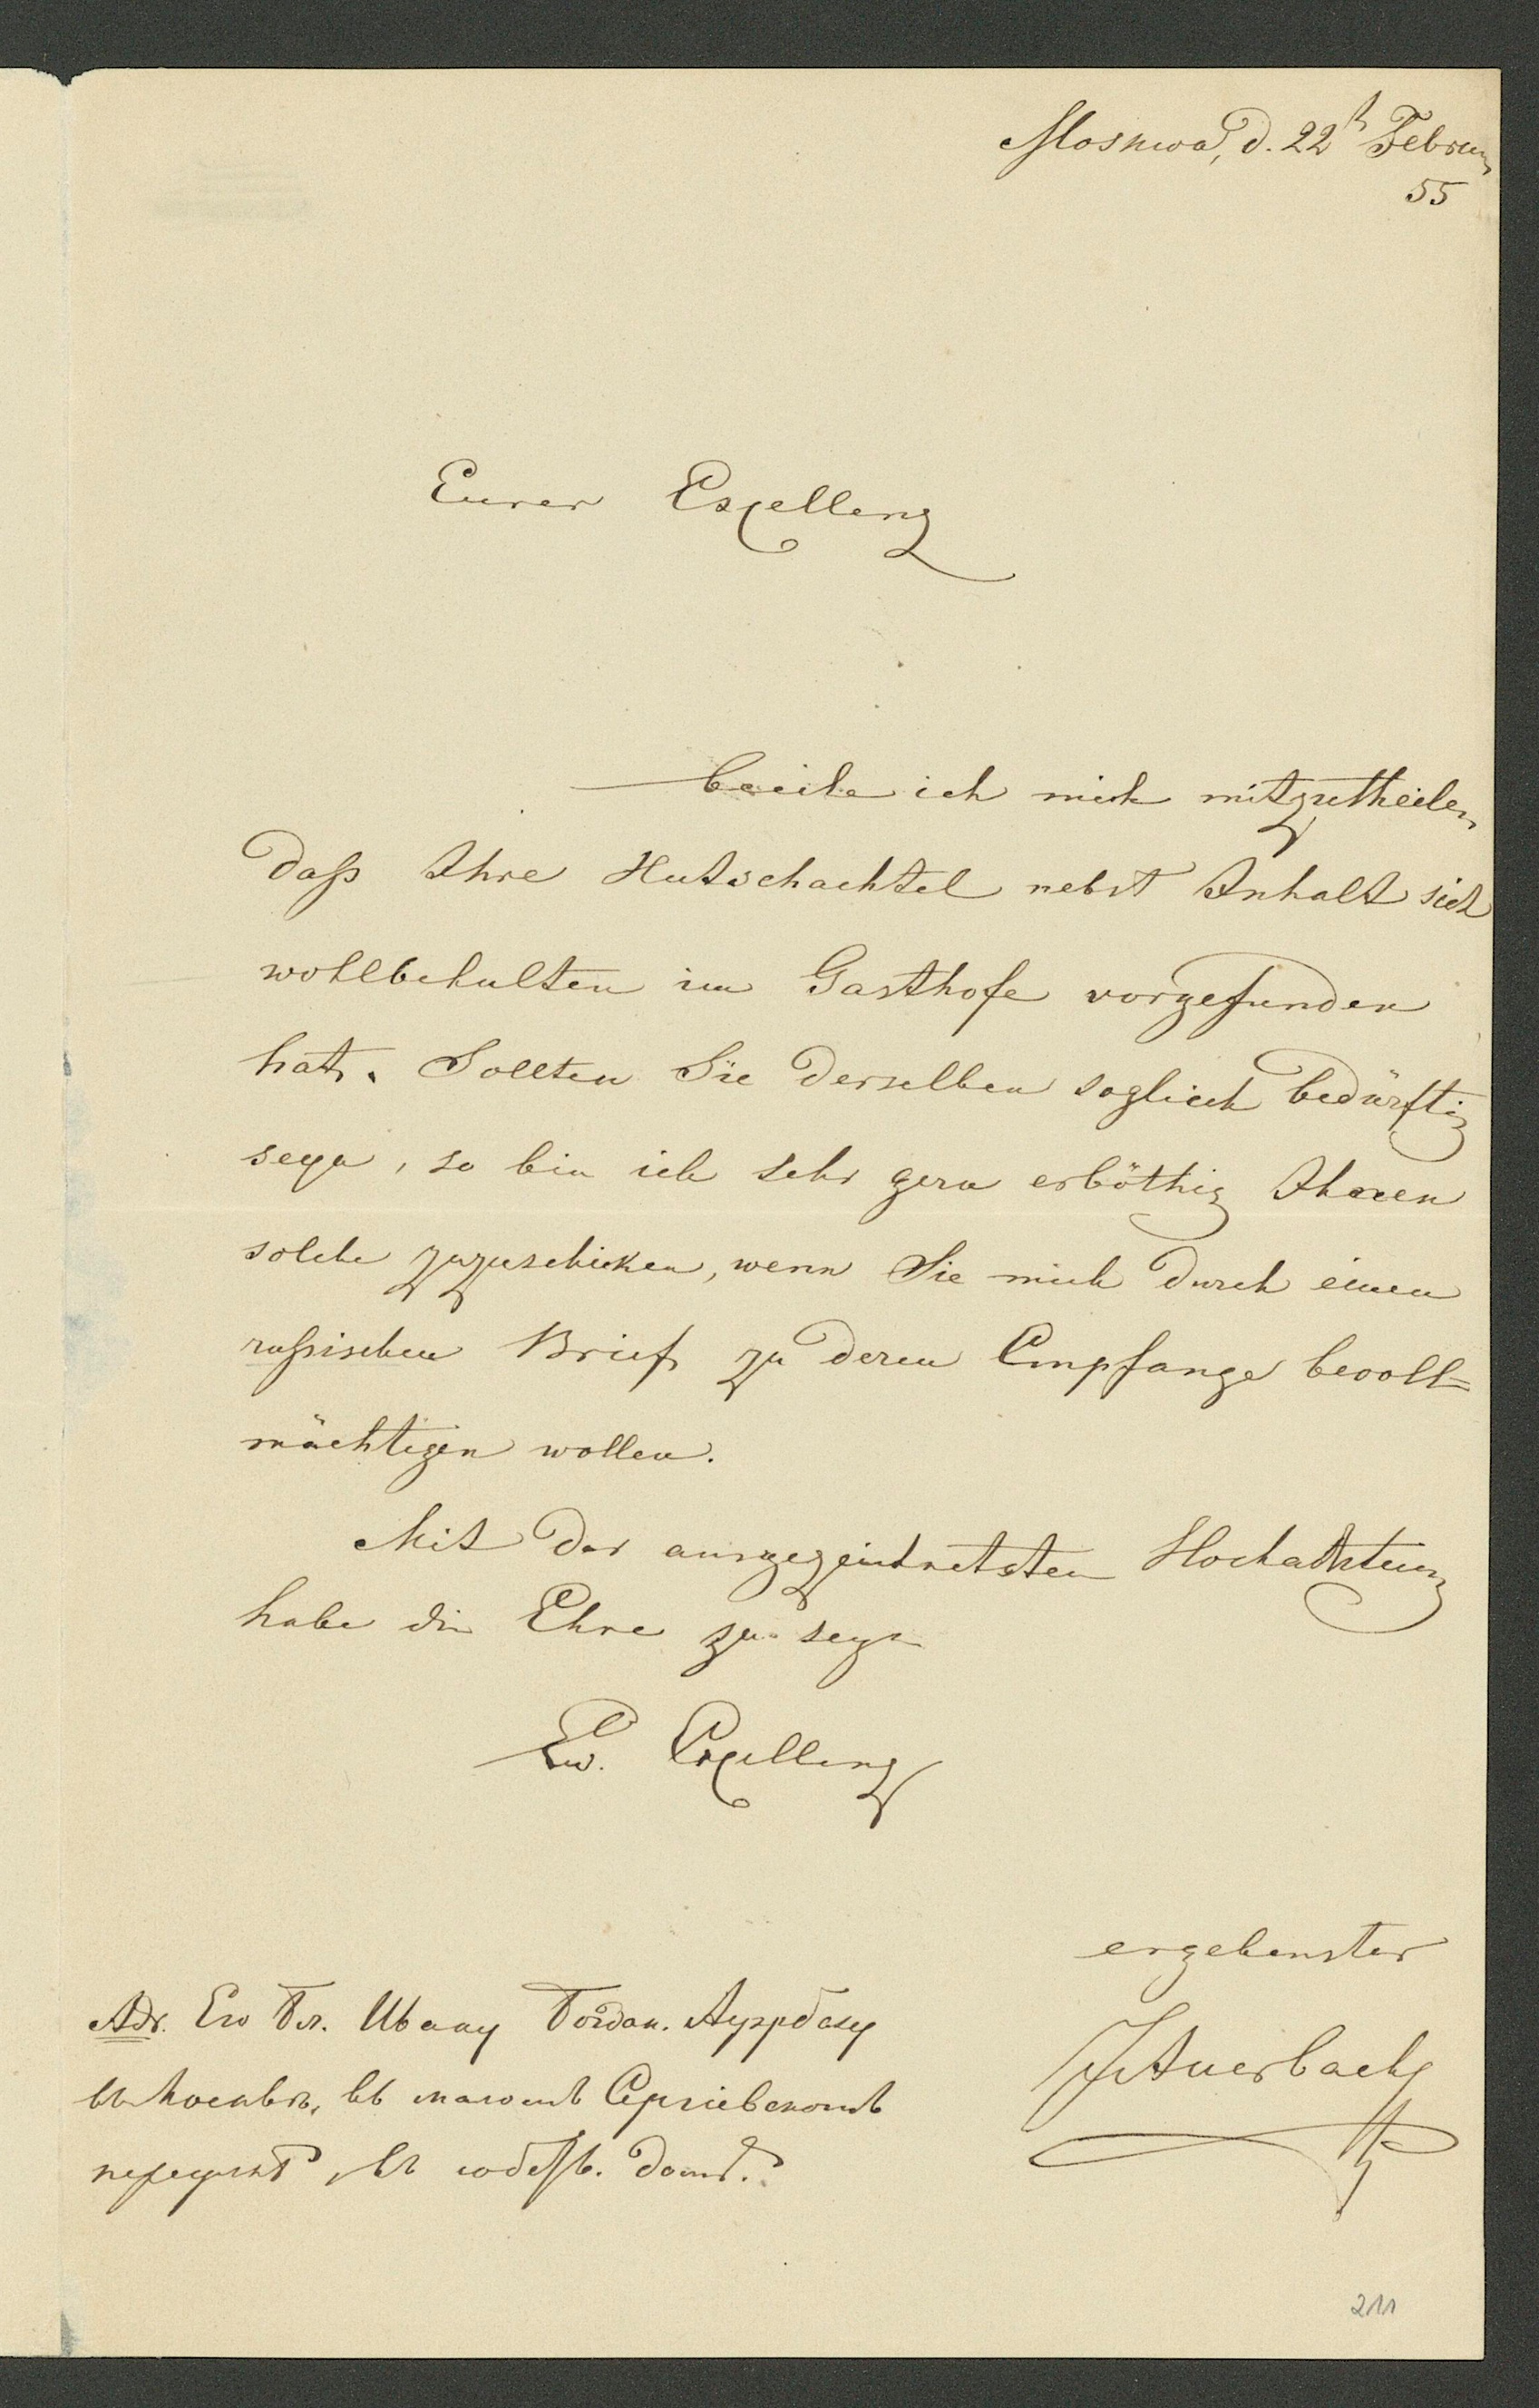 Moskwa, d. 22t Februar
55
Eurer Excellenz
beeile ich mich mitzutheilen
daß Ihre Hutschachtel nebst Inhalt sich
wohlbehalten im Gasthofe vorgefunden
hat. Sollten Sie derselben sogleich bedürftig
seyn, so bin ich sehr gern erböthig Ihnen
solche zuzuschicken, wenn Sie mich durch einen
rußischen Brief zu deren Empfange bevoll=
mächtigen wollen.
Mit der ausgezeichnetsten Hochachtung
habe die Ehre zu seyn
Ew. Excellenz
ergebenster
JAuerbach
Adr. Его Бл. Ивану Богдан. Ауэрбаху
въ Москвѣ, въ маломъ Сергіевскомъ
переулкѣ, въ собств. домѣ.
211